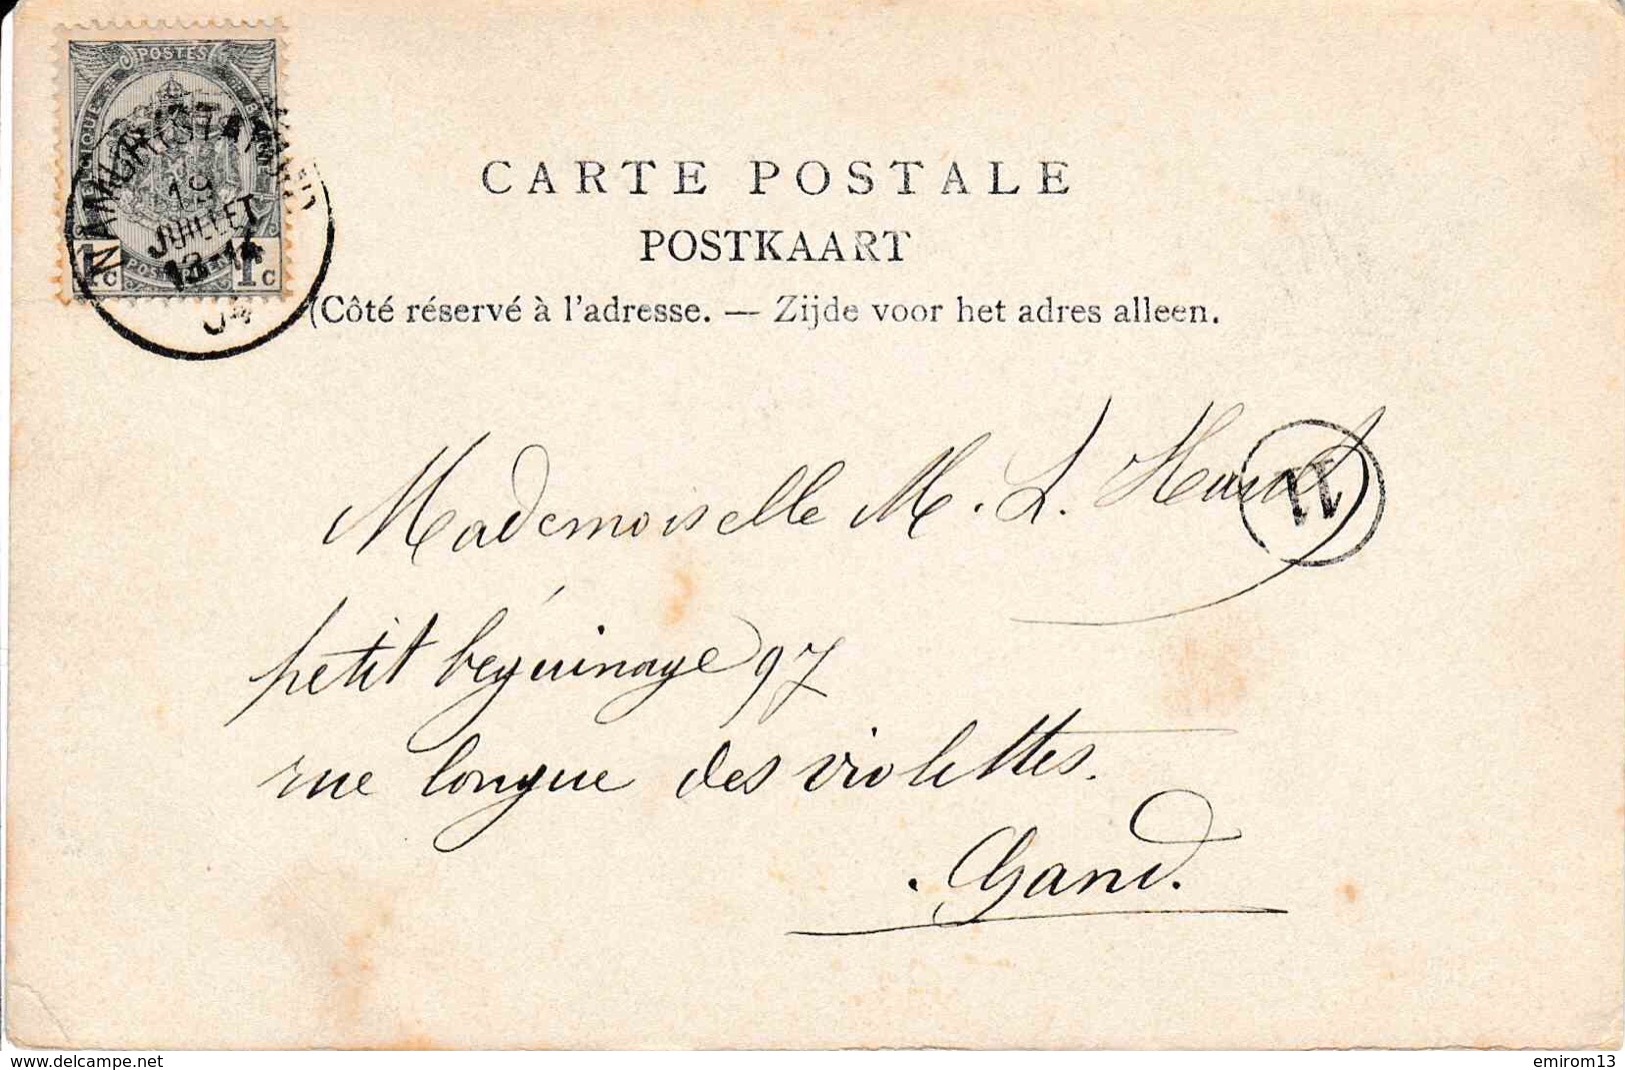 POSTES
NAMUR (STATION)
19
JUILLET
13-14
04
1c 1c
CARTE POSTALE
POSTKAART
(Côté réservé à l'adresse. — Zijde voor het adres alleen.
Mademoiselle M. L.
11
petit béguinage 97
rue longue des violettes.
Gand.
www.delcampe.net
emirom13